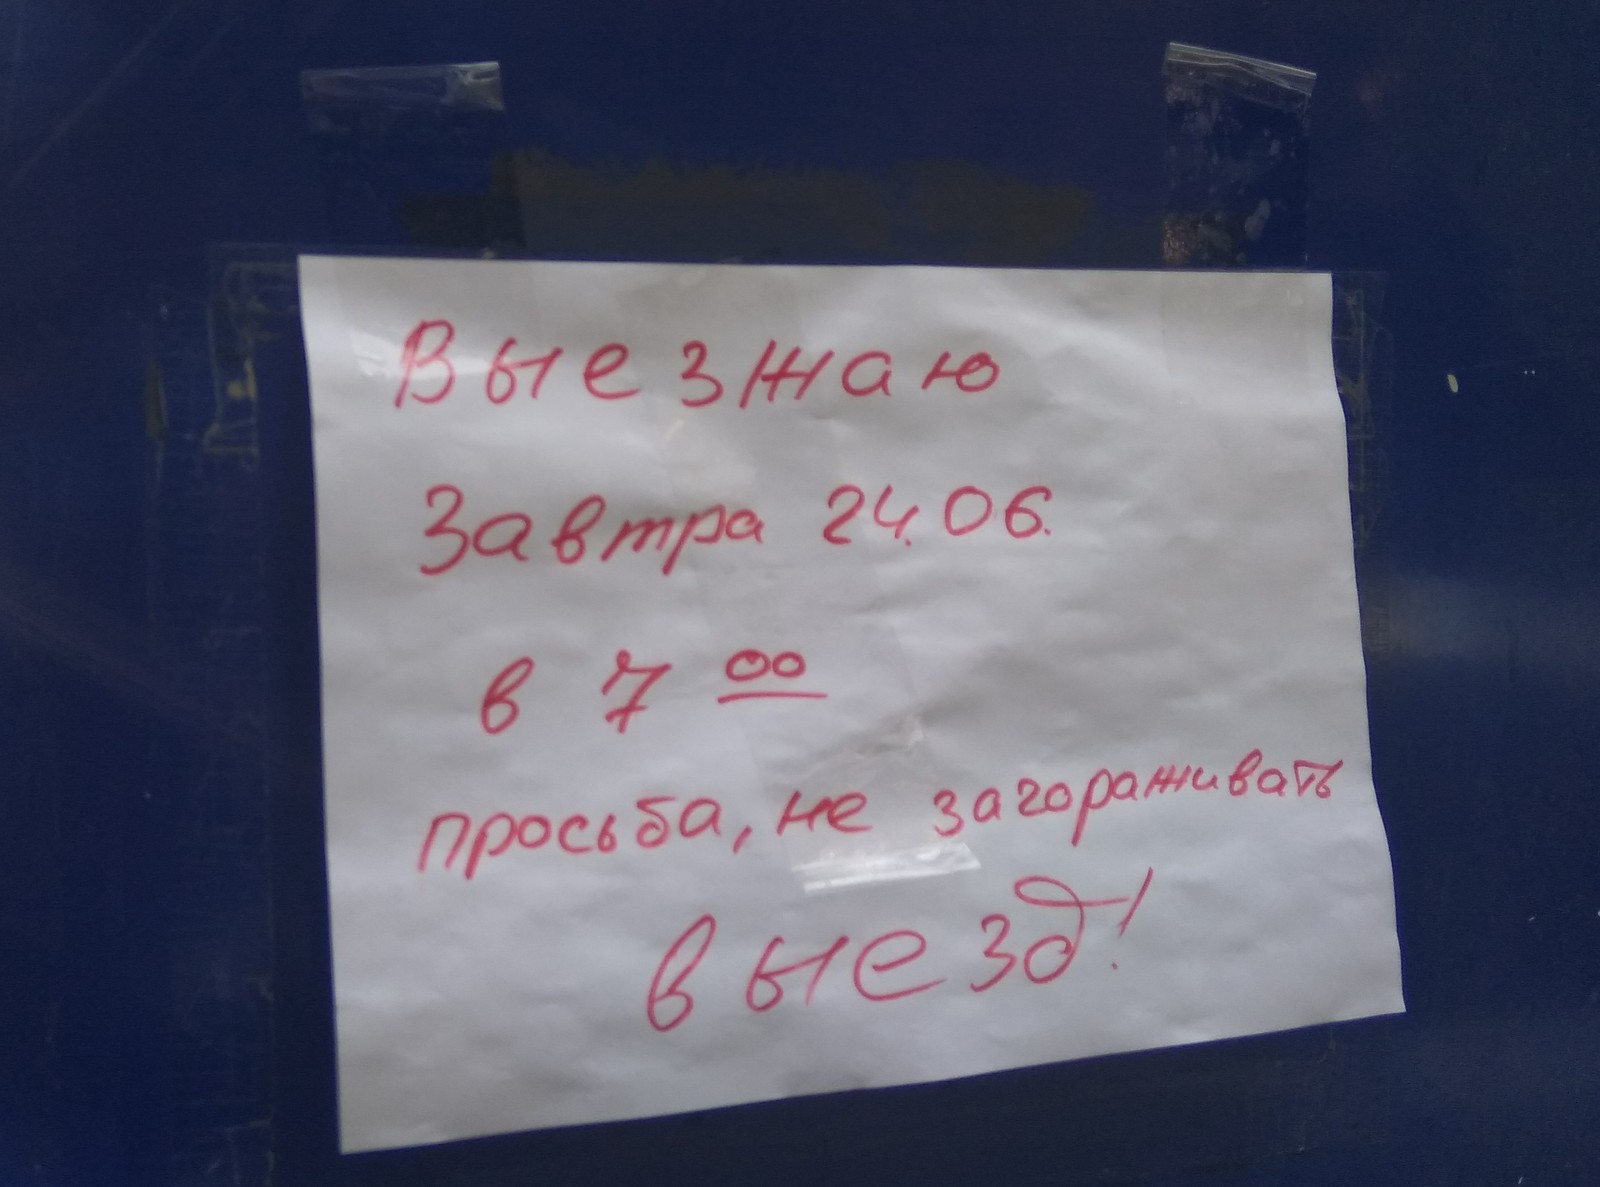 Выезжаю
Завтра 24.06.
в 7 00
просьба, не загораживать
выезд!